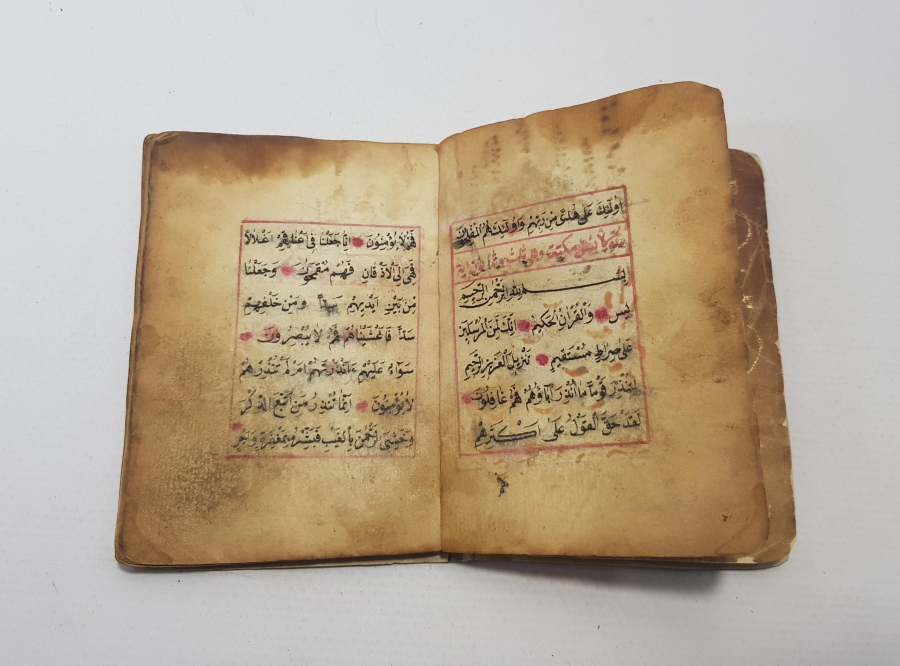 اُولٰئِكَ عَلٰى هُدًى مِنْ رَبِّهِمْ وَاُولٰئِكَ هُمُ الْمُفْلِحُونَ
مكية وهي اية
بِسْمِ اللهِ الرَّحْمٰنِ الرَّحِيمِ
يٰسٓ وَالْقُرْاٰنِ الْحَكِيمِ اِنَّكَ لَمِنَ الْمُرْسَلِينَ
عَلٰى صِرَاطٍ مُسْتَقِيمٍ تَنْزِيلَ الْعَزِيزِ الرَّحِيمِ
لِتُنْذِرَ قَوْمًا مَا اُنْذِرَ اٰبَاؤُهُمْ فَهُمْ غَافِلُونَ
لَقَدْ حَقَّ الْقَوْلُ عَلٰى اَكْثَرِهِمْ
فَهُمْ لَا يُؤْمِنُونَ اِنَّا جَعَلْنَا فِى اَعْنَاقِهِمْ اَغْلَالًا
فَهِىَ اِلَى الْاَذْقَانِ فَهُمْ مُقْمَحُونَ وَجَعَلْنَا
مِنْ بَيْنِ اَيْدِيهِمْ سَدًّا وَمِنْ خَلْفِهِمْ
سَدًّا فَاَغْشَيْنَاهُمْ فَهُمْ لَا يُبْصِرُونَ
سَوَاءٌ عَلَيْهِمْ ءَاَنْذَرْتَهُمْ اَمْ لَمْ تُنْذِرْهُمْ
لَا يُؤْمِنُونَ اِنَّمَا تُنْذِرُ مَنِ اتَّبَعَ الذِّكْرَ
وَخَشِىَ الرَّحْمٰنَ بِالْغَيْبِ فَبَشِّرْهُ بِمَغْفِرَةٍ وَاَجْرٍ